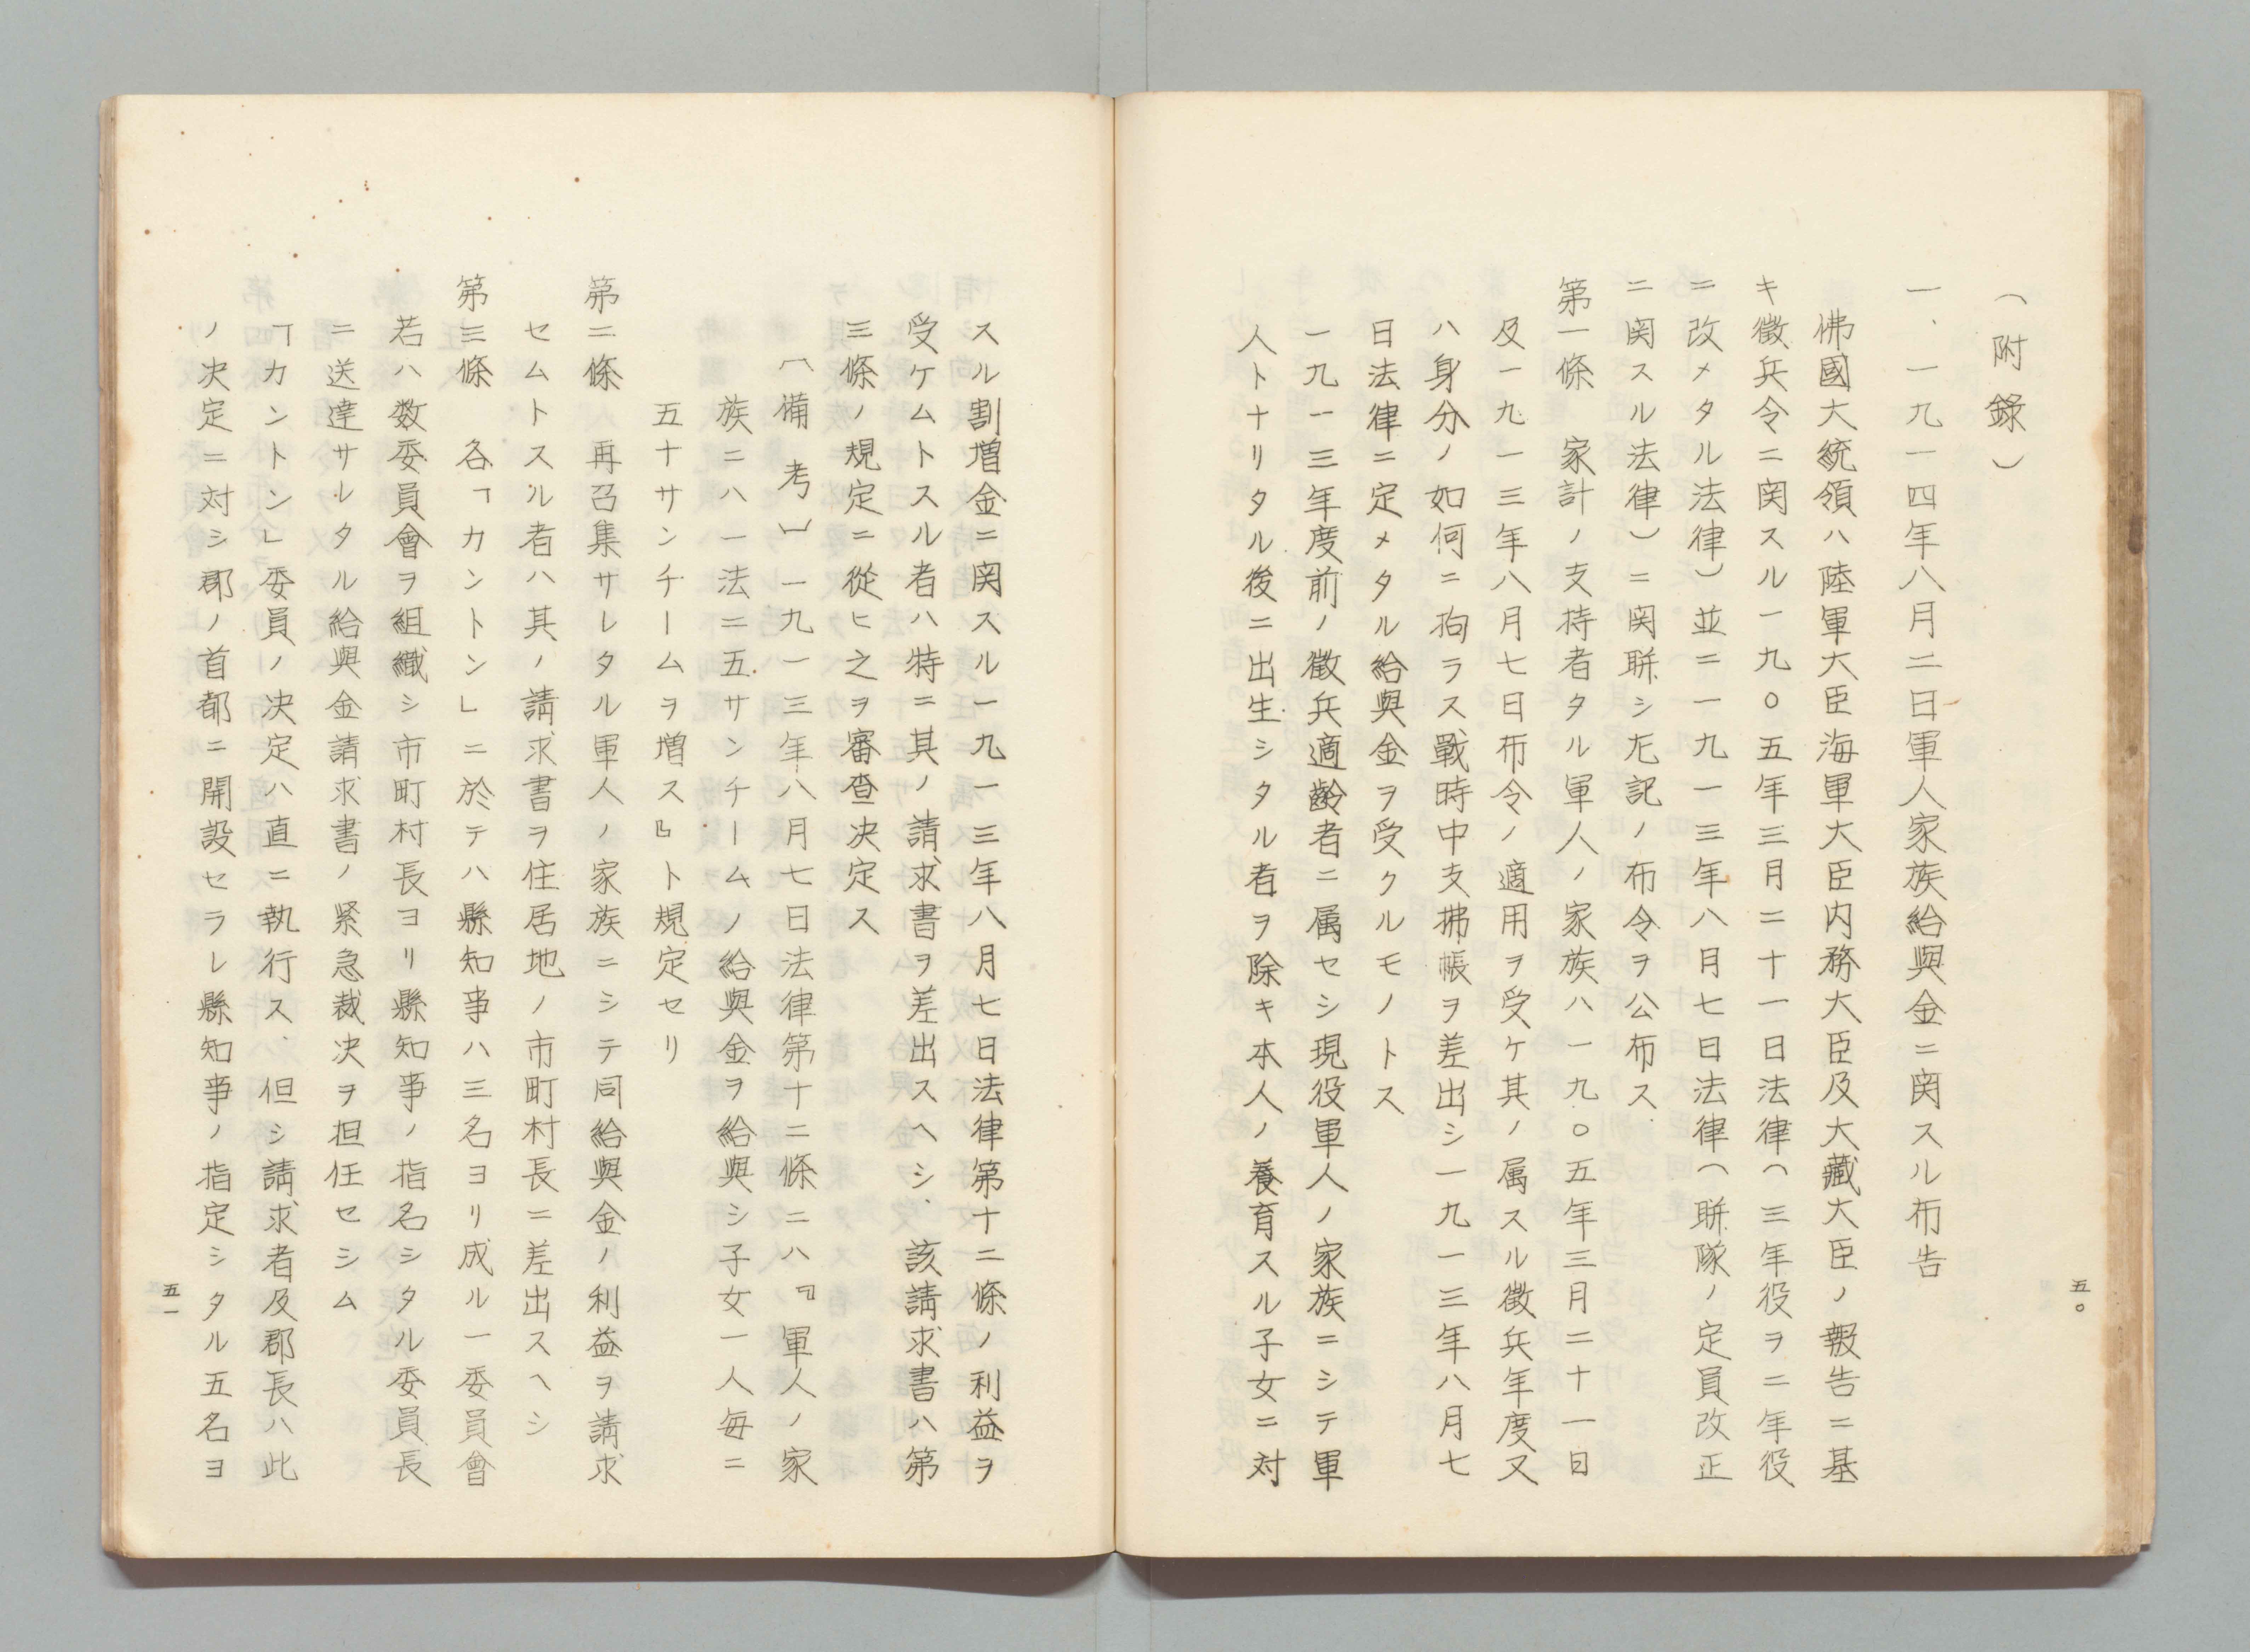 五〇
（附錄）
一、一九一四年八月二日軍人家族給與金ニ関スル布告
佛國大統領ハ陸軍大臣海軍大臣内務大臣及大藏大臣ノ報告ニ基
キ徵兵令ニ関スル一九〇五年三月二十一日法律（三年役ヲ二年役
ニ改メタル法律）並ニ一九一三年八月七日法律（聯隊ノ定員改正
ニ関スル法律）ニ関聯シ左記ノ布令ヲ公布ス
第一條　家計ノ支持者タル軍人ノ家族ハ一九〇五年三月二十一日
及一九一三年八月七日布令ノ適用ヲ受ケ其ノ属スル徵兵年度又
ハ身分ノ如何ニ拘ラス戰時中支拂帳ヲ差出シ一九一三年八月七
日法律ニ定メタル給與金ヲ受クルモノトス
一九一三年度前ノ徵兵適齡者ニ属セシ現役軍人ノ家族ニシテ軍
人トナリタル後ニ出生シタル者ヲ除キ本人ノ養育スル子女ニ対
スル割増金ニ関スル一九一三年八月七日法律第十二條ノ利益ヲ
受ケムトスル者ハ特ニ其ノ請求書ヲ差出スヘシ、該請求書ハ第
三條ノ規定ニ從ヒ之ヲ審査決定ス
〔備考〕一九一三年八月七日法律第十二條ニハ『軍人ノ家
族ニハ一法ニ五サンチームノ給與金ヲ給與シ子女一人每ニ
五十サンチームヲ増ス』ト規定セリ
第二條　再召集サレタル軍人ノ家族ニシテ同給與金ノ利益ヲ請求
セムトスル者ハ其ノ請求書ヲ住居地ノ市町村長ニ差出スヘシ
第三條　各「カントン」ニ於テハ縣知事ハ三名ヨリ成ル一委員會
若ハ数委員會ヲ組織シ市町村長ヨリ縣知事ノ指名シタル委員長
ニ送達サレタル給與金請求書ノ緊急裁決ヲ担任セシム
「カントン」委員ノ決定ハ直ニ執行ス、但シ請求者及郡長ハ此
ノ決定ニ対シ郡ノ首都ニ開設セラレ縣知事ノ指定シタル五名ヨ
五一